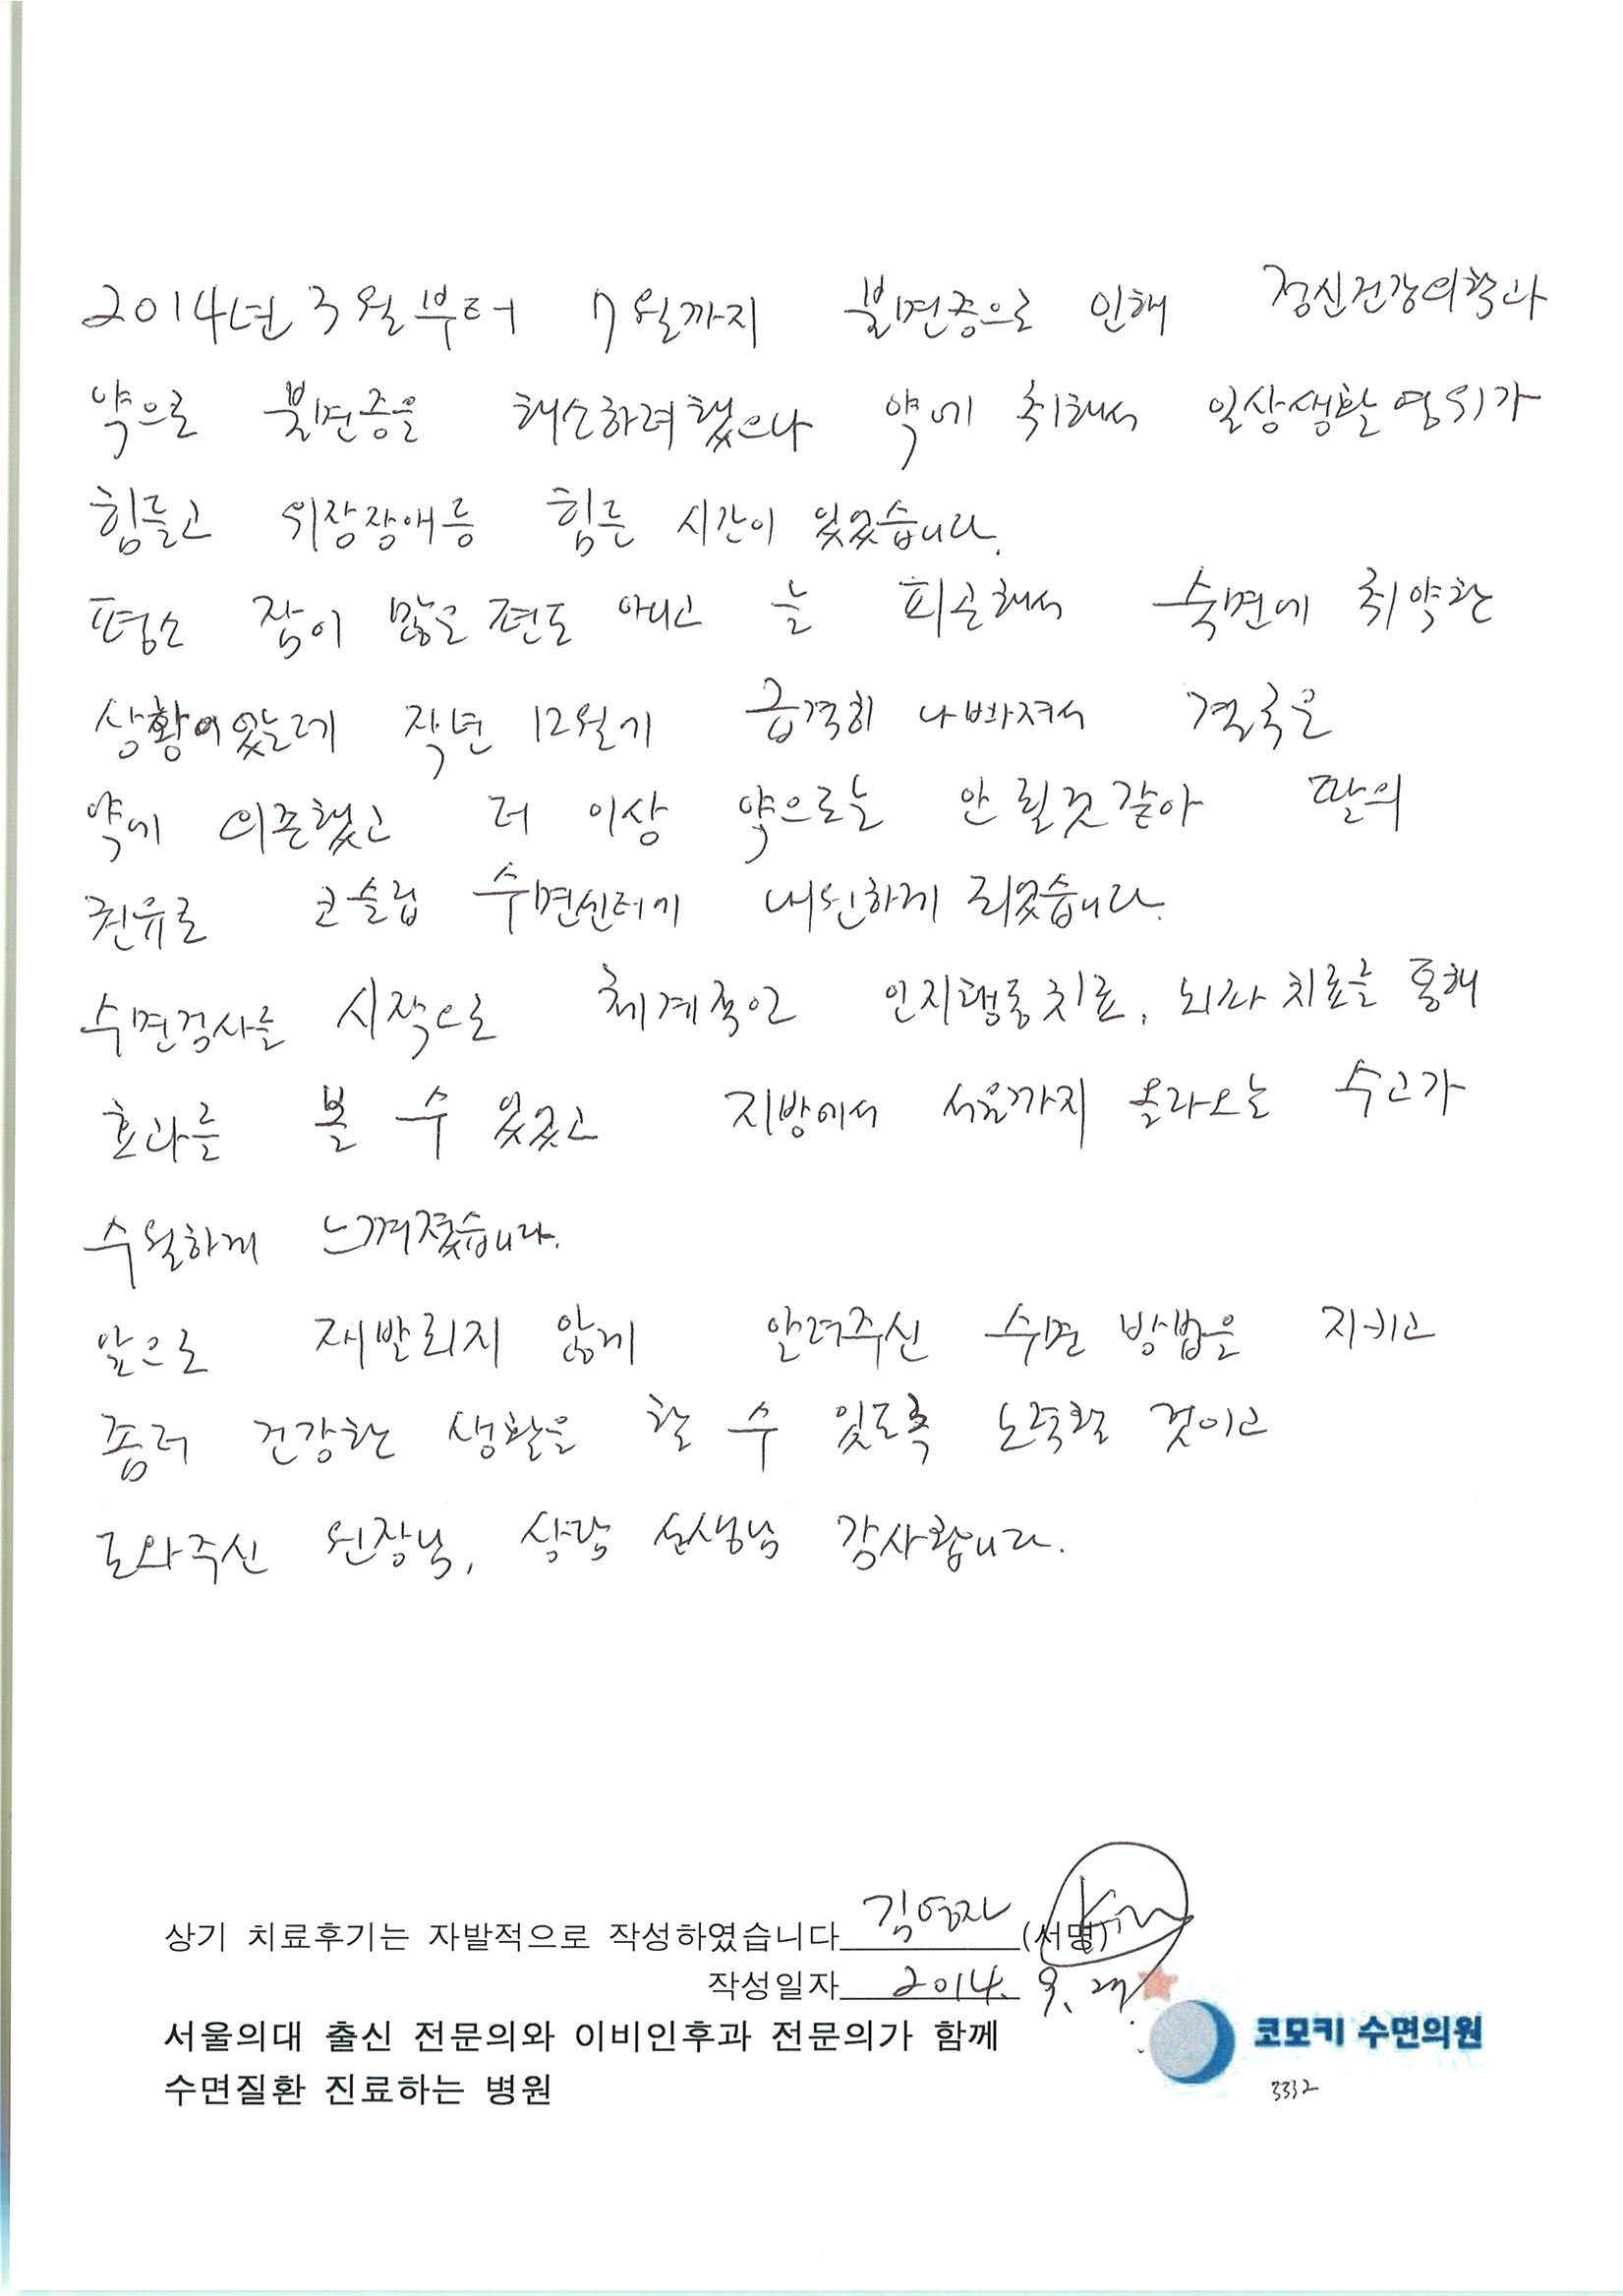 2014년 3월부터 7월까지 불면증으로 인해 정신건강의학과
약으로 불면증을 해소하려했으나 약에 취해서 일상생활영위가
힘들고 위장장애등 힘든 시간이 있었습니다.
평소 잠이 많은편도 아니고 늘 피곤해서 숙면에 취약한
상황이었는데 작년 12월기 급격히 나빠져서 결국은
약에 의존했고 더 이상 약으로는 안 될것같아 딸의
권유로 코슬립 수면센터기 내원하게 되었습니다.
수면검사를 시작으로 체계적인 인지행동치료, 뇌파치료를 통해
효과를 볼 수 있었고 지방에서 서울까지 올라오는 수고가
수월하게 느껴졌습니다.
앞으로 재발되지 않게 알려주신 수면 방법을 지키고
좀더 건강한 생활을 할 수 있도록 노력할 것이고
도와주신 원장님, 상담 선생님 감사합니다.
상기 치료후기는 자발적으로 작성하였습니다 김영자 (서명) Kim
작성일자 2014. 9. 27.
서울의대 출신 전문의와 이비인후과 전문의가 함께
수면질환 진료하는 병원
코모키 수면의원
3332